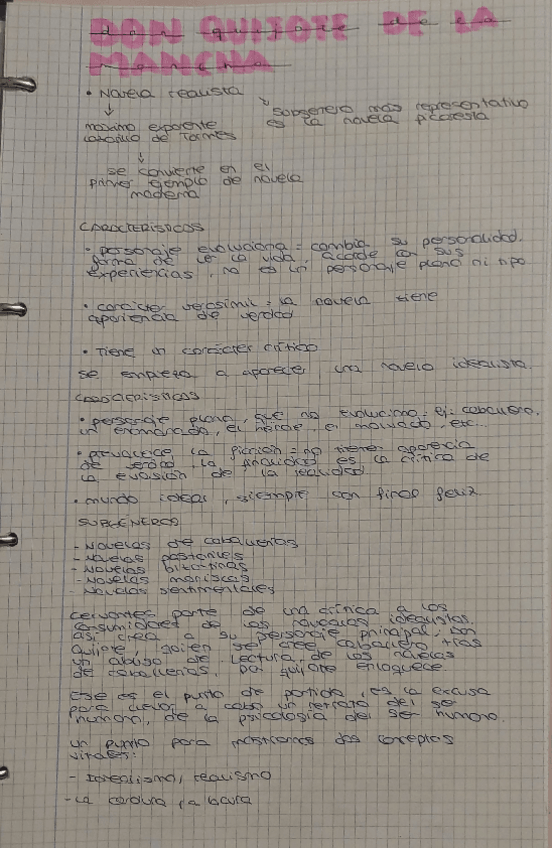 DON QUIJOTE DE LA
MANCHA
• Novela realista
↓
subgenero más representativo
es la novela picaresca
máximo exponente
Lazarillo de Tormes
↓
se convierte en el
primer ejemplo de novela
moderna
CARACTERISTICAS
• personaje evoluciona = cambia su personalidad,
forma de ver la vida, acorde con sus
experiencias, no es un personaje plano ni tipo
• carácter verosímil = la novela tiene
apariencia de verdad
• Tiene un carácter crítico
se empieza a aparecer una novela idealista.
CARACTERISTICAS
• personaje plano, que no evoluciona, ej: caballero,
un enamorado, el héroe, el malvado, etc...
• prevalece la ficción = no tienen apariencia
de verdad. La finalidad es la crítica de
la evasión de la realidad.
• mundo ideal, siempre con final feliz
SUBGÉNEROS
- Novelas de caballerías
- Novelas pastoriles
- Novelas bizantinas
- Novelas moriscas
- Novelas sentimentales
Cervantes parte de una crítica a los
consumidores de las novelas idealistas.
así crea a su personaje principal, Don
Quijote, quien se cree caballero tras
un abuso de lectura de las novelas
de caballerías, Don Quijote enloquece.
Ese es el punto de partida, es la excusa
para llevar a cabo un retrato del ser
humano, de la psicología del ser humano.
un punto para mostrarnos dos conceptos
vitales:
- Idealismo, realismo
- La cordura, la locura